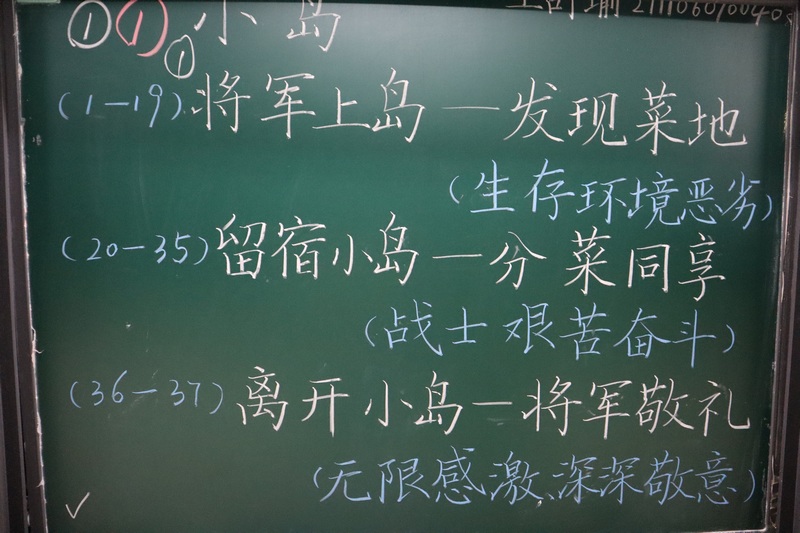 ① ① 小岛
①
(1—19)将军上岛—发现菜地
(生存环境恶劣)
(20—35)留宿小岛—分菜同享
(战士艰苦奋斗)
(36—37)离开小岛—将军敬礼
(无限感激、深深敬意)